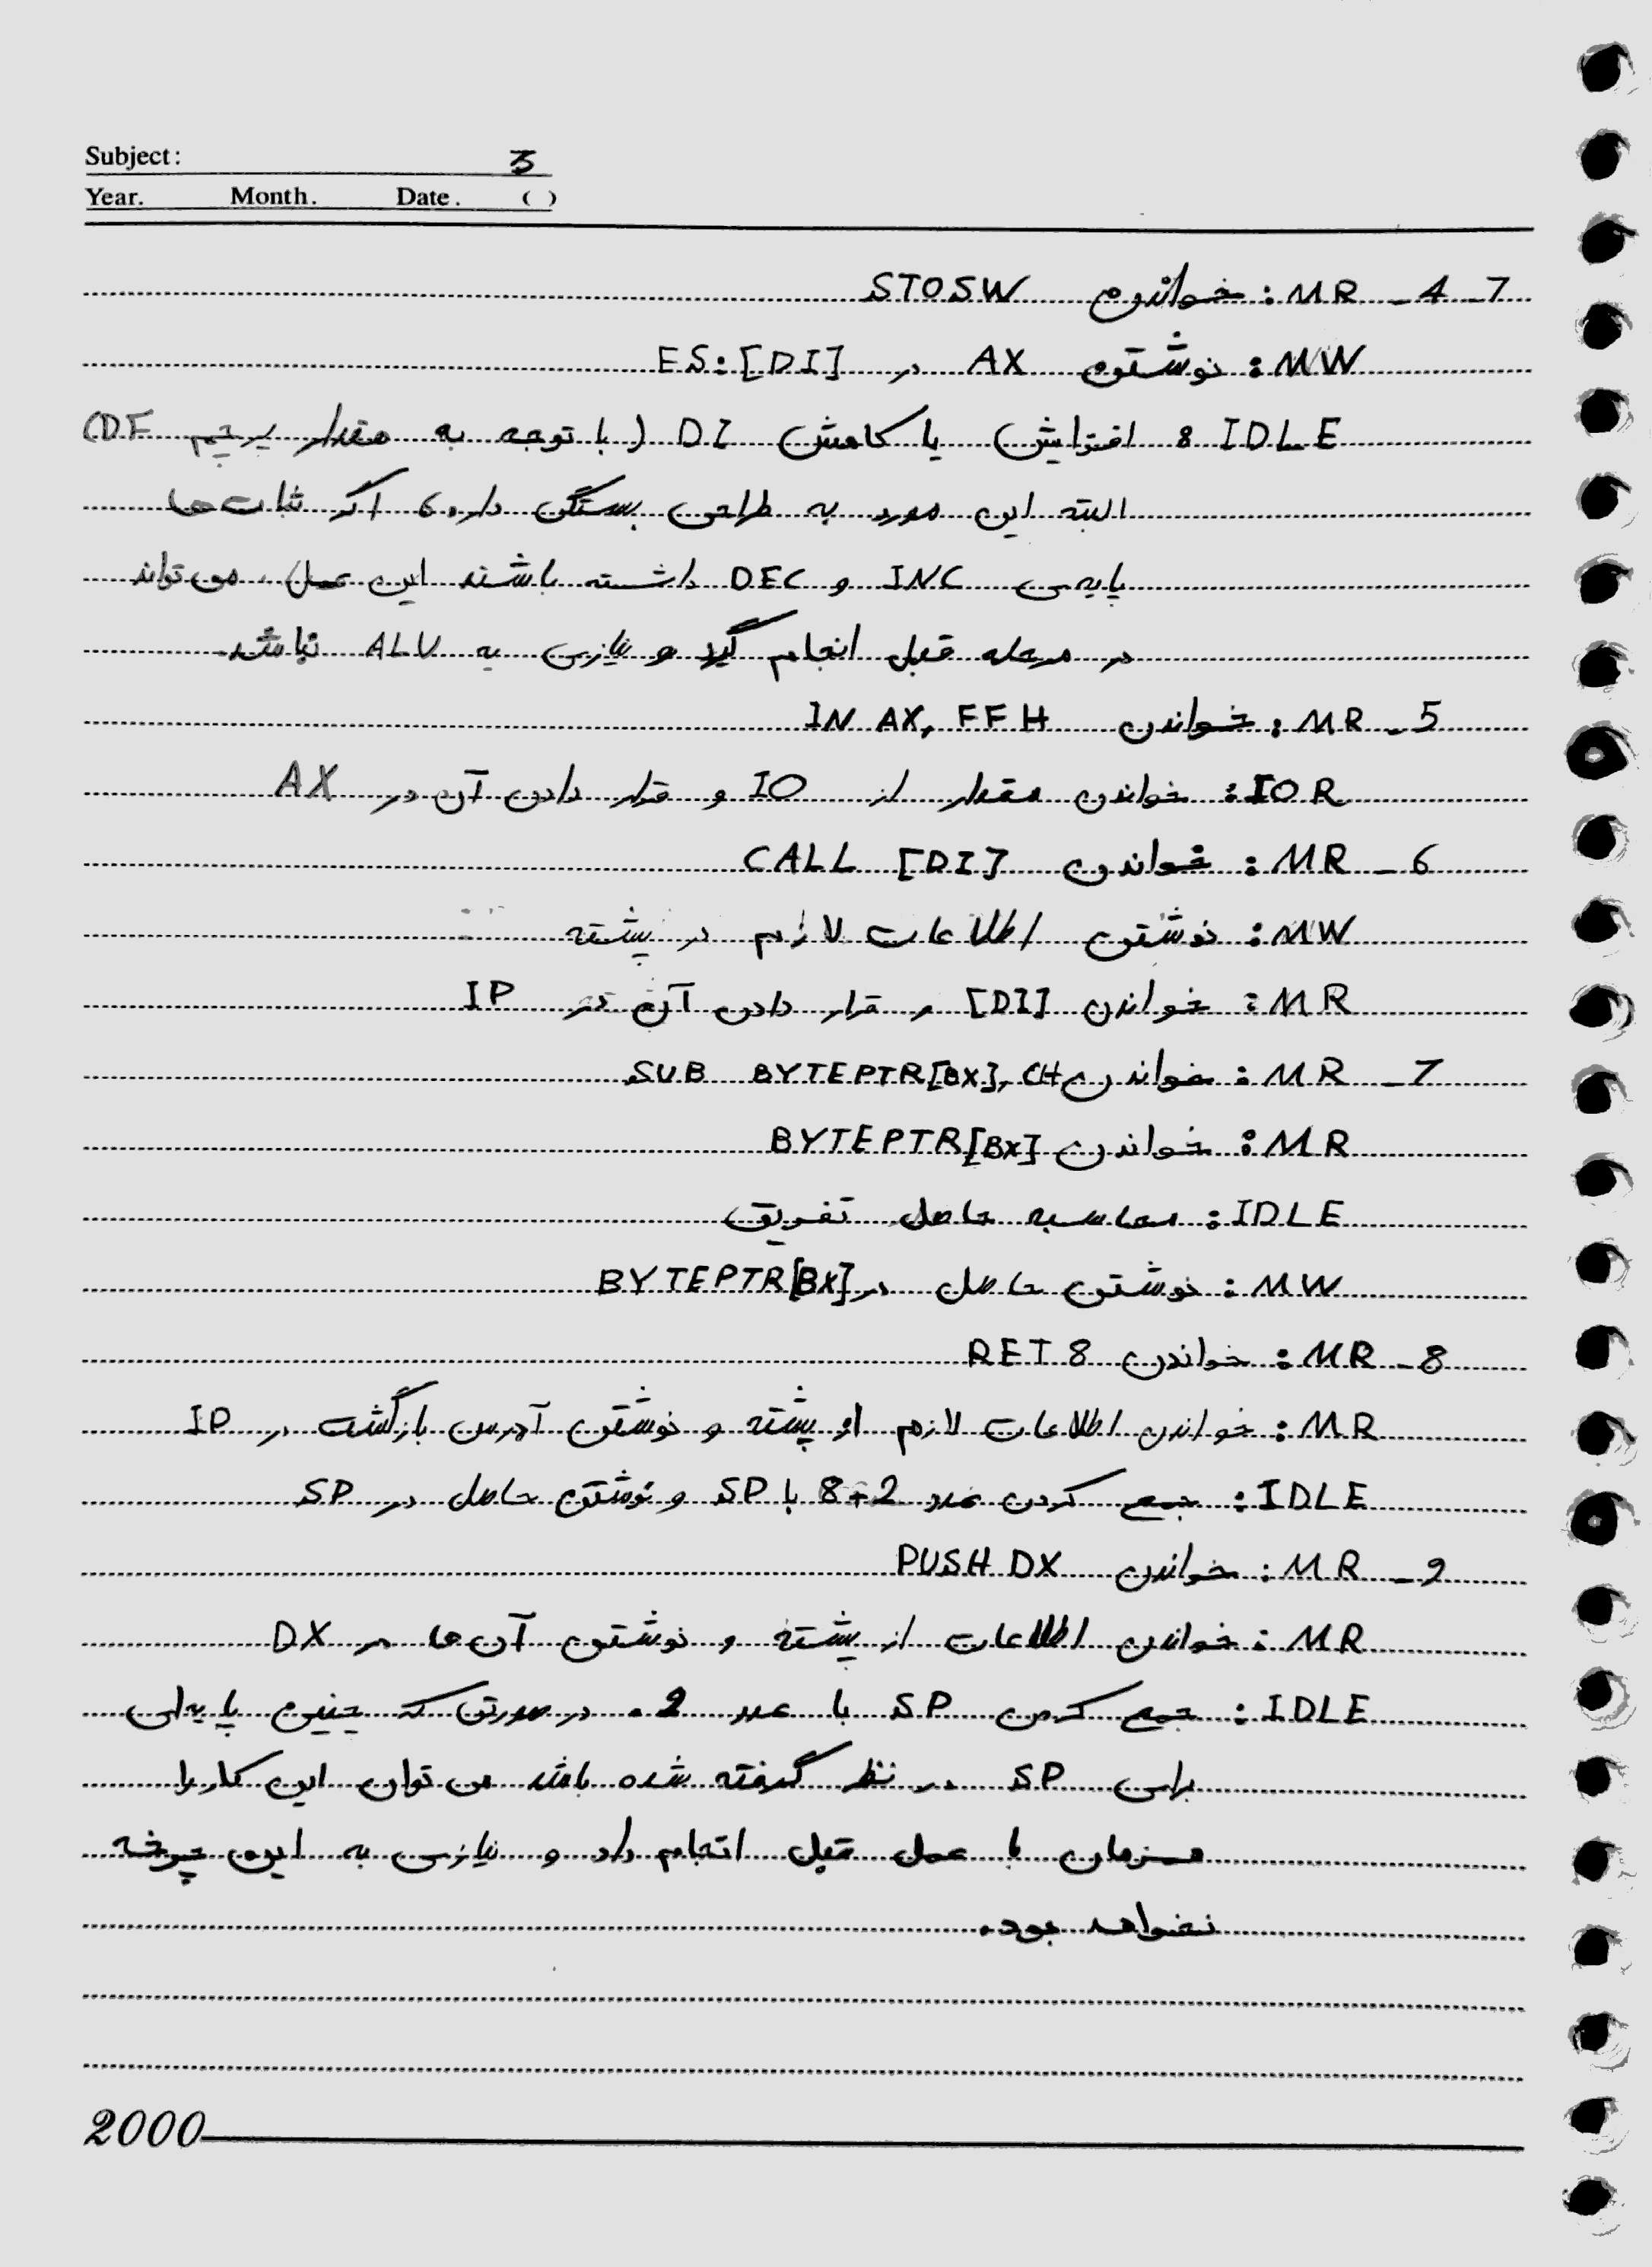 Subject: 3
Year. Month. Date. ( )
7_4_ MR: خواندن STOSW
MW: نوشتن AX در ES:[DI]
IDLE: افزایش یا کاهش DI (با توجه به مقدار پرچم DF)
البته این مورد به طراحی بستگی دارد، اگر ثبات‌ها
پایه‌ی INC و DEC داشته باشند این عمل، می‌تواند
در مرحله قبل انجام گیرد و نیازی به ALU نباشد.
5_ MR: خواندن IN AX, FFH
IOR: خواندن مقدار از IO و قرار دادن آن در AX
6_ MR: خواندن CALL [DI]
MW: نوشتن اطلاعات لازم در پشته
MR: خواندن [DI] و قرار دادن آن در IP
7_ MR: خواندن SUB BYTEPTR[BX], CH
MR: خواندن BYTEPTR[BX]
IDLE: محاسبه حاصل تفریق
MW: نوشتن حاصل در BYTEPTR[BX]
8_ MR: خواندن RET 8
MR: خواندن اطلاعات لازم از پشته و نوشتن آدرس بازگشت در IP
IDLE: جمع کردن عدد 8+2 با SP و نوشتن حاصل در SP
9_ MR: خواندن PUSH DX
MR: خواندن اطلاعات از پشته و نوشتن آن‌ها در DX
IDLE: جمع کردن SP با عدد 2. در صورتی که چنین پایه‌ای
برای SP در نظر گرفته شده باشد می‌توان این کار را
همزمان با عمل قبل انجام داد و نیازی به این چرخه
نخواهد بود.
2000